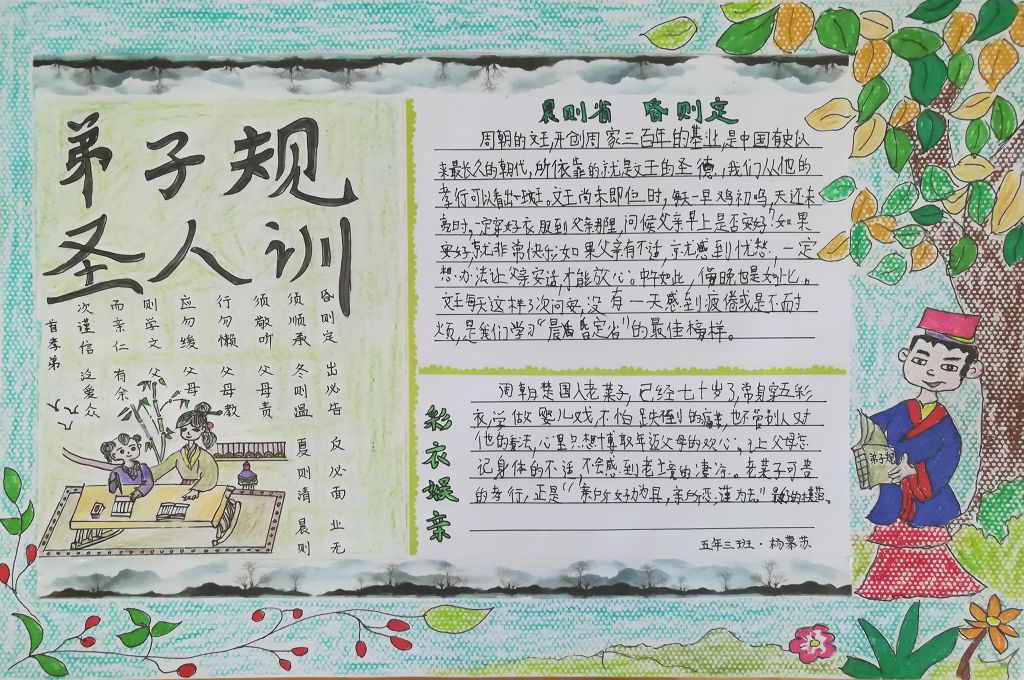 弟子规
圣人训
昏则定 出必告 反必面 业无
须顺承 冬则温 夏则清 晨则
须敬听 父母责
行勿懒 父母教
应勿缓 父母
则学文 父
而亲仁 有余
次谨信 泛爱众
首孝弟
晨则省 昏则定
周朝的文王开创周家三百年的基业,是中国有史以
来最长久的朝代,所依靠的就是文王的圣德,我们从他的
孝行可以看出一班。文王尚未即位时,每天一早鸡初鸣,天还未
亮时,一定穿好衣服到父亲那里,问候父亲早上是否安好?如果
安好,就非常快乐;如果父亲有不适,就感到忧愁,一定
想办法让父亲安适,才能放心。中午如此,傍晚也是如此。
文王每天这样3次问安,没有一天感到疲倦或是不耐
烦,是我们学习“晨省昏定省”的最佳榜样。
彩衣娱亲
周朝楚国人老莱子,已经七十岁了,常身穿五彩
衣,学做婴儿戏,不怕跌倒的痛苦,也不管别人对
他的看法,心里只想博取年迈父母的欢心,让父母忘
记身体的不适,不会感到老境的凄凉。老莱子可贵
的孝行,正是“亲所好,力为具,亲所恶,谨为去”
五年三班·杨慕苏
弟子规